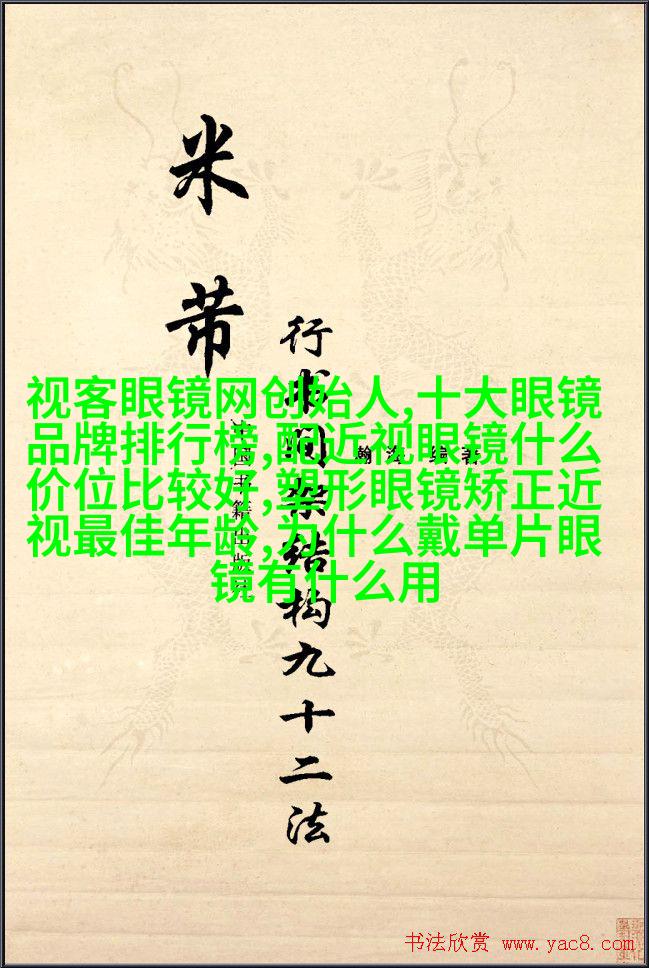 米芾
行书间架结构九十二法
编著
中国书籍出版社
视客眼镜网创始人,十大眼镜
品牌排行榜,配近视眼镜什么
价位比较好,塑形眼镜矫正近
视最佳年龄,为什么戴单片眼
镜有什么用
书法欣赏 www.yac8.com